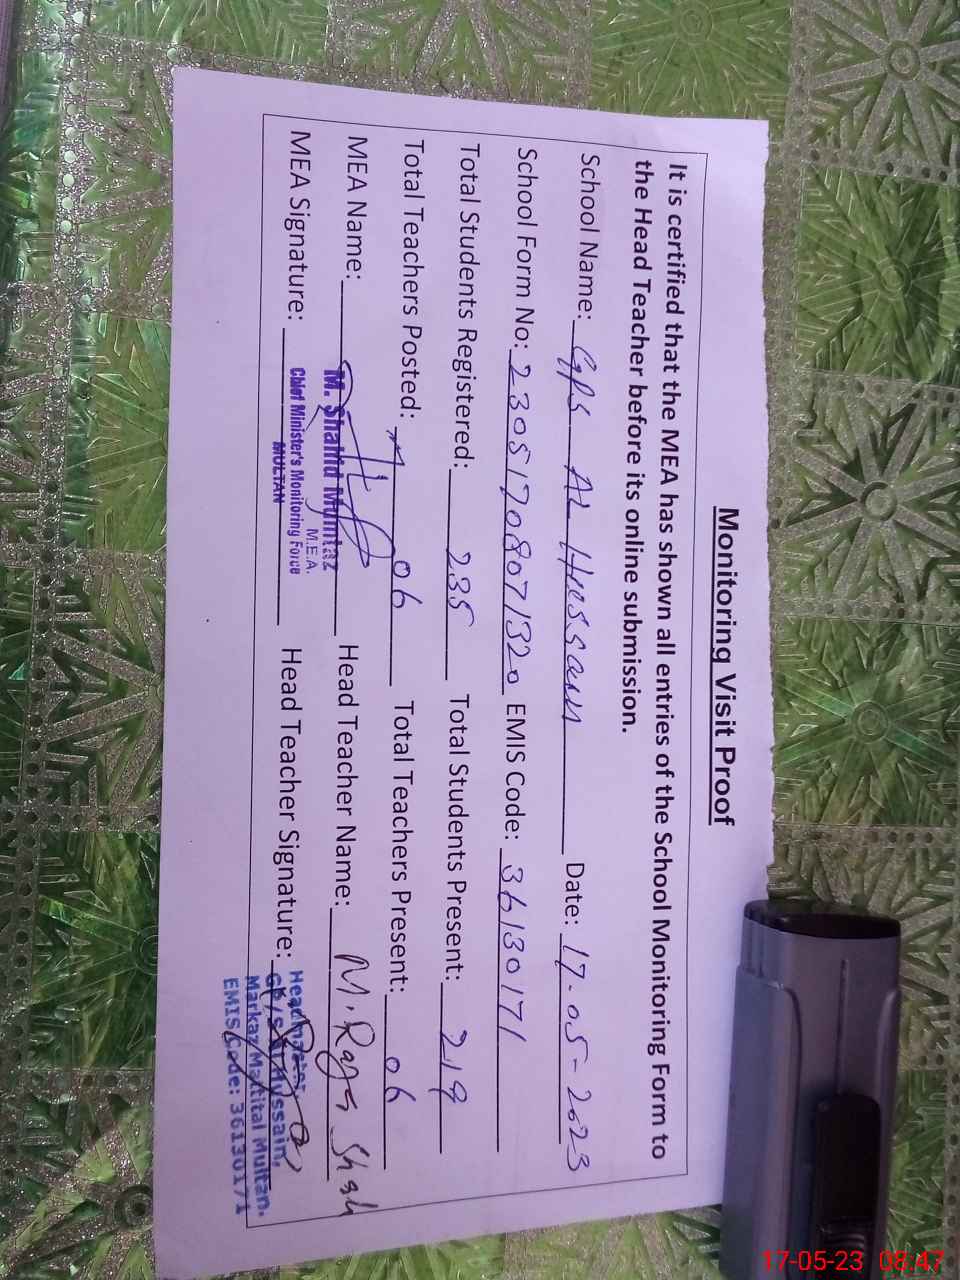 Monitoring Visit Proof
It is certified that the MEA has shown all entries of the School Monitoring Form to
the Head Teacher before its online submission.
School Name: GPS AL Hussain Date: 17-05-2023
School Form No: 23051708071320 EMIS Code: 36130171
Total Students Registered: 235 Total Students Present: 219
Total Teachers Posted: 06 Total Teachers Present: 06
MEA Name: M. Shahid Mumtaz Head Teacher Name: M. Rays Shah
M.E.A.
MEA Signature: Chief Minister's Monitoring Force Head Teacher Signature: Headmaster
MULTAN
G.P/S Al Hussain,
Markaz Mattital Multan.
EMIS Code: 36130171
17-05-23 08:47